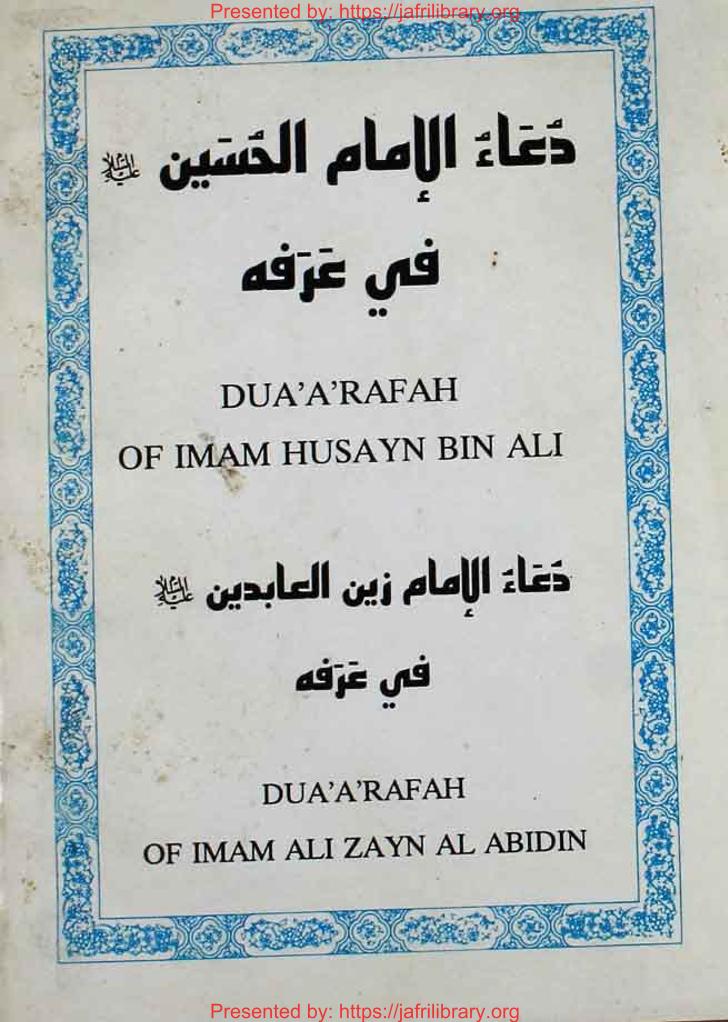 Presented by: https://jafrilibrary.org
دُعَاءُ الإمام الحُسَين عليه السلام
في عَرَفه
DUA'A'RAFAH
OF IMAM HUSAYN BIN ALI
دُعَاءُ الإمام زين العابدين عليه السلام
في عَرَفه
DUA'A'RAFAH
OF IMAM ALI ZAYN AL ABIDIN
Presented by: https://jafrilibrary.org